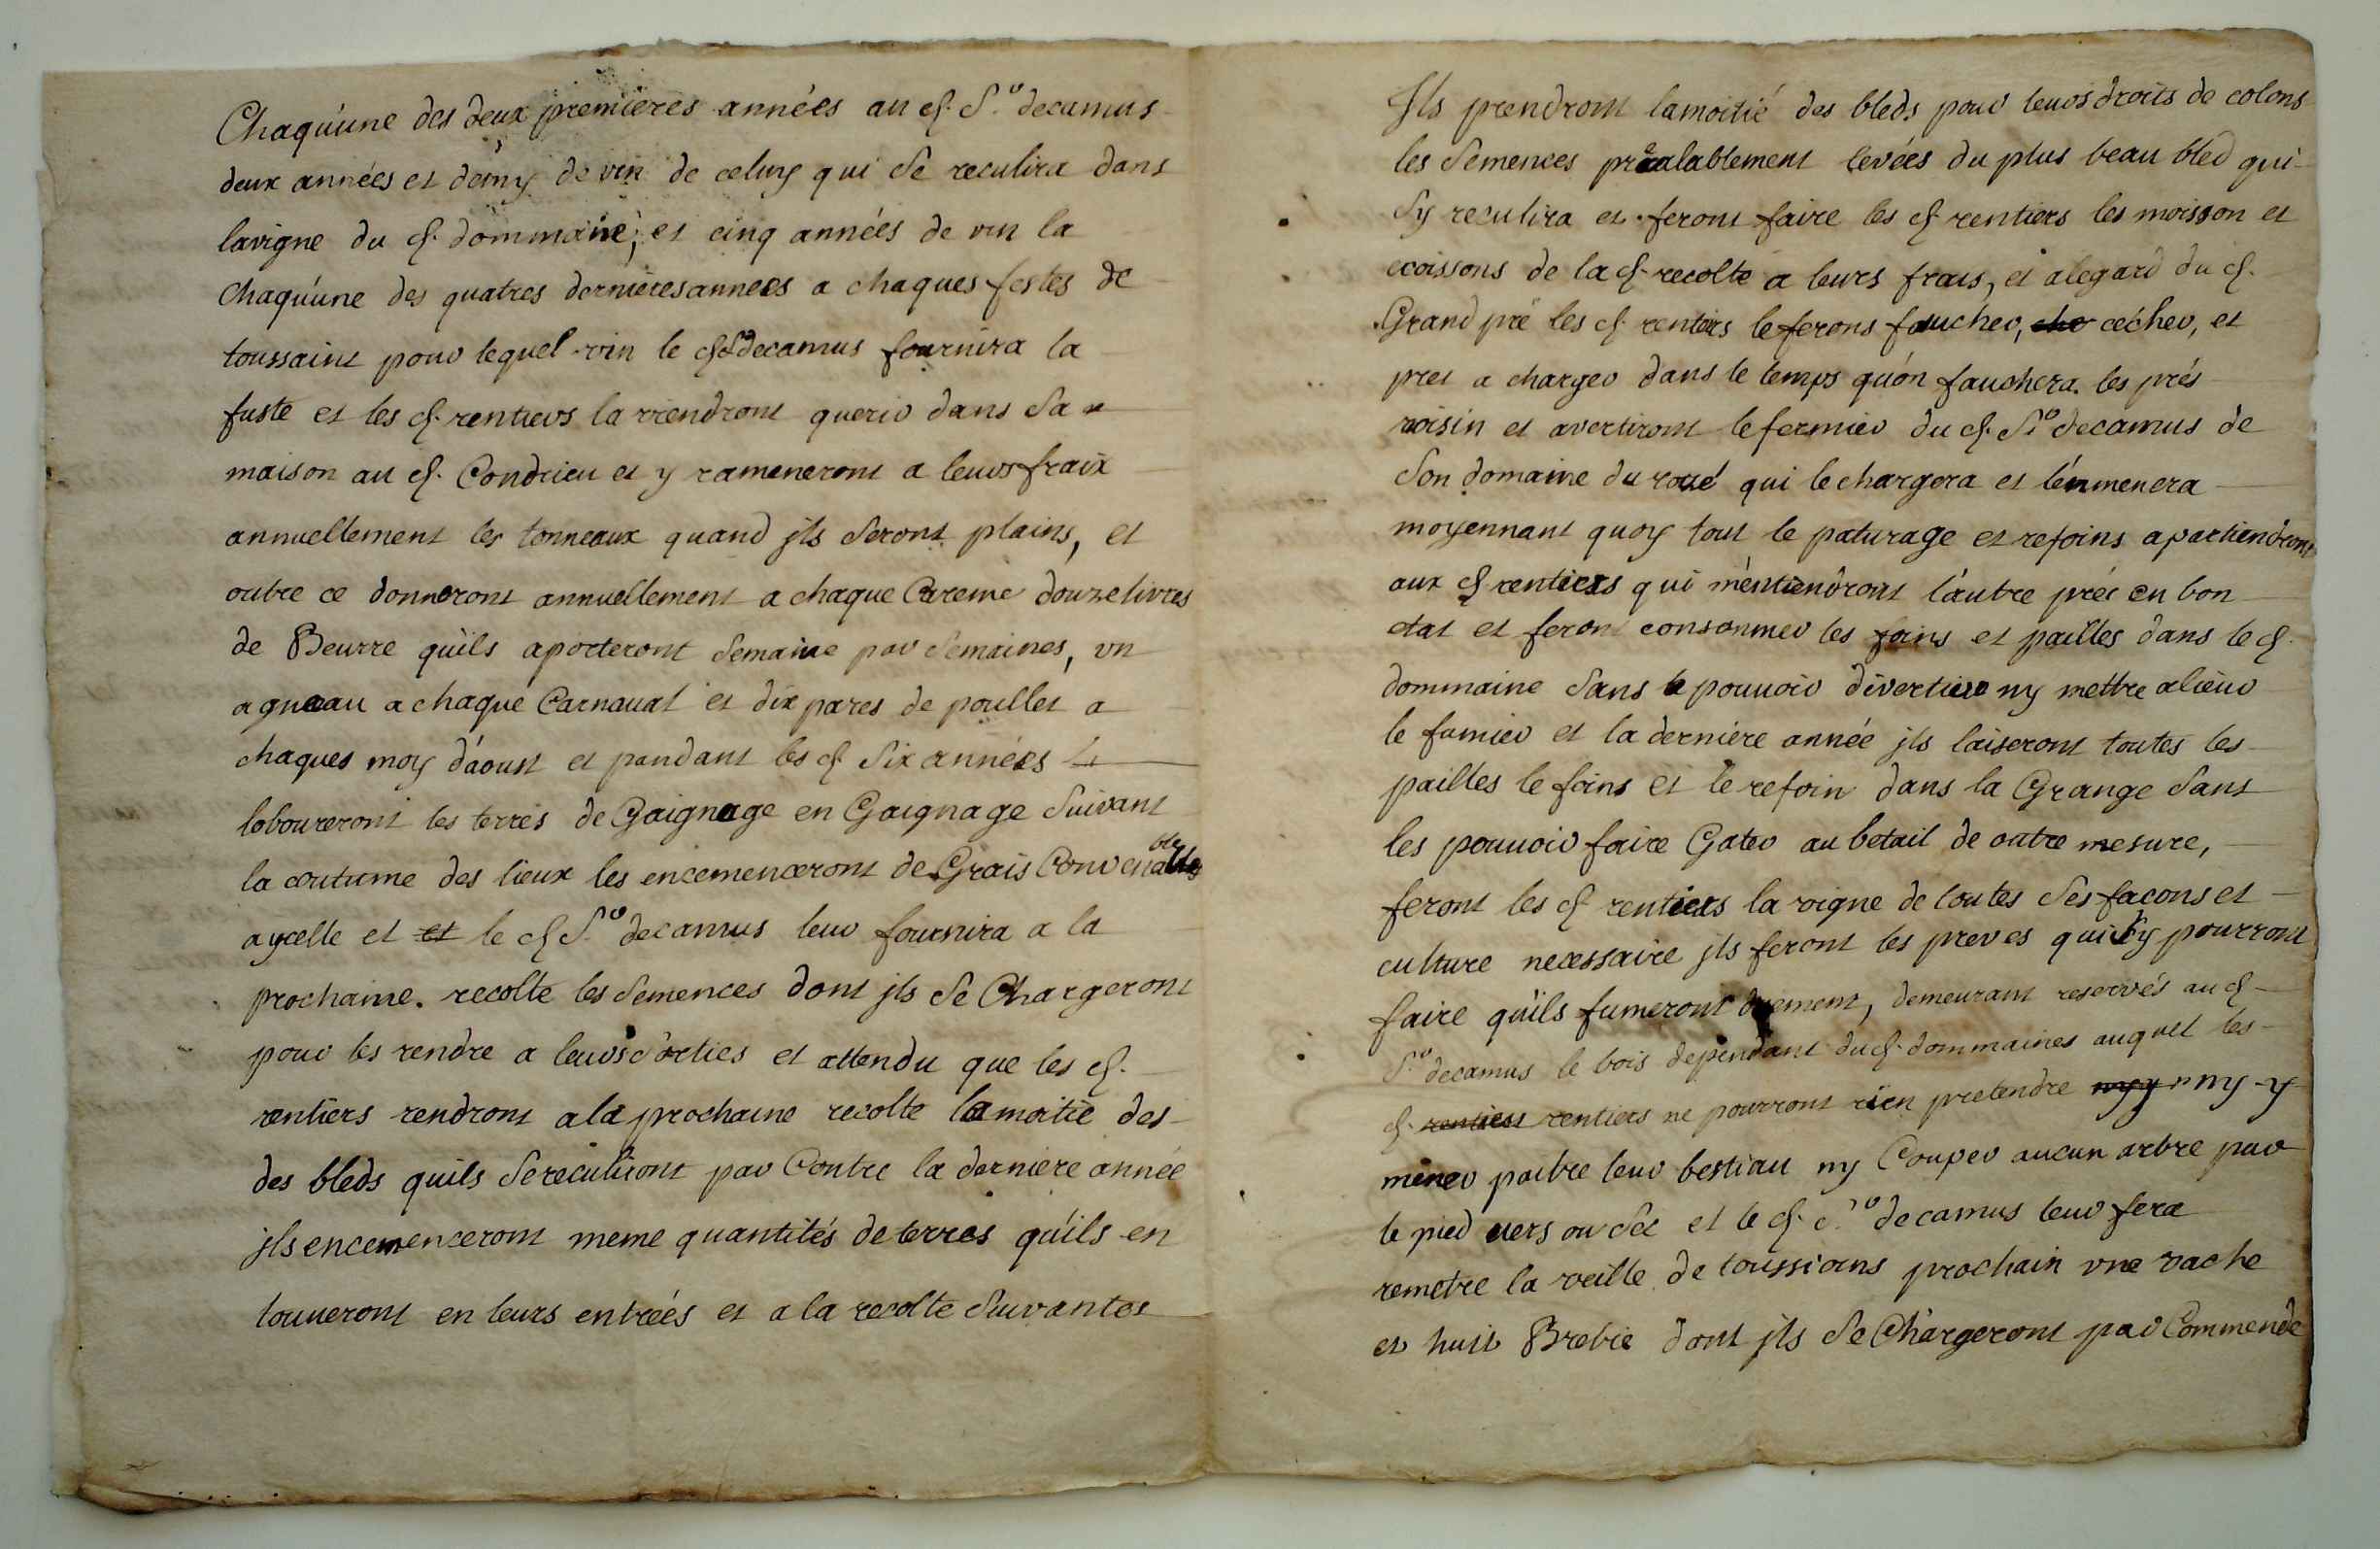 Chaqu'une des deux premieres années au d. S.r decamus
deux années et demy de vin de celuy qui se reculira dans
lavigne du d. dommaine; et cinq années de vin la
chaqu'une des quatres dernieres années a chaques festes de
toussaint pour lequel vin le d. Sr decamus fournira la
fuste et les d. rentiers la viendront querir dans sa
maison au d. Condrieu et y rameneront a leurs fraix
annuellement les tonneaux quand jls seront plains, et
outre ce donneront annuellement a chaque Careme douze livres
de Beurre qu'ils aporteront semaine par semaines, vn
agneau a chaque Carnaual et dix pares de poullet a
chaques moy d'aoust et pandant les d. six années
laboureront les terres de Gaignage en Gaignage suivant
la coutume des lieux les encemenceront de Grais Convenables
aycelle et et le d. S.r decamus leur fournira a la
prochaine. recolte les semences dont jls se Chargeront
pour les rendre a leurs sorties et attendu que les d.
rentiers rendront ala prochaine recolte la moitie des
des bleds quils se reculiront par Contre la derniere année
jls encemenceront meme quantités de terres qu'ils en
touueront en leurs entreés et a la recolte suivantes
Jls prendront lamoitié des bleds pour leurs droits de colons
les semences préalablement levées du plus beau bled qui
sy reculira et feront faire les d. rentiers les moisson et
ecoissons de la d. recolte a leurs frais, et alegard du d.
Grand pré les d. rentiers leferons faucher, che cécher, et
pret a charger dans le temps qu'on fauchera les prés
voisin et avertiront lefermier du d. Sr decamus de
son domaine du rozé qui lechargera et l'emmenera
moyennant quoy tout le paturage et refoins apartiendront
aux d. rentiers qui mentiendront l'autre prés en bon
etat et feront consonmer les foins et pailles dans le d.
dommaine sans le pouuoir divertire ny mettre alieur
le fumier et la derniere année jls laiseront toutes les
pailles le foins et le refoin dans la Grange sans
les pouuoir faire Gater au betail de outre mesure,
feront les d. rentiers la vigne de toutes ses facons et
culture necessaire jls feront les preves qui sy pourront
faire qu'ils fumeront duement, demeurant reservés au d.
S.r decamus le bois dependant du d. dommaines auquel les
d. rentiers rentiers ne pourront rien pretendre nyy ny y
mener paitre leur bestiau ny Couper aucun arbre par
le pied vers ou séc et le d. S.r decamus leur fera
remetre la veille de toussians prochain vne vache
et huit Brebie dont jls se Chargeront par Commende